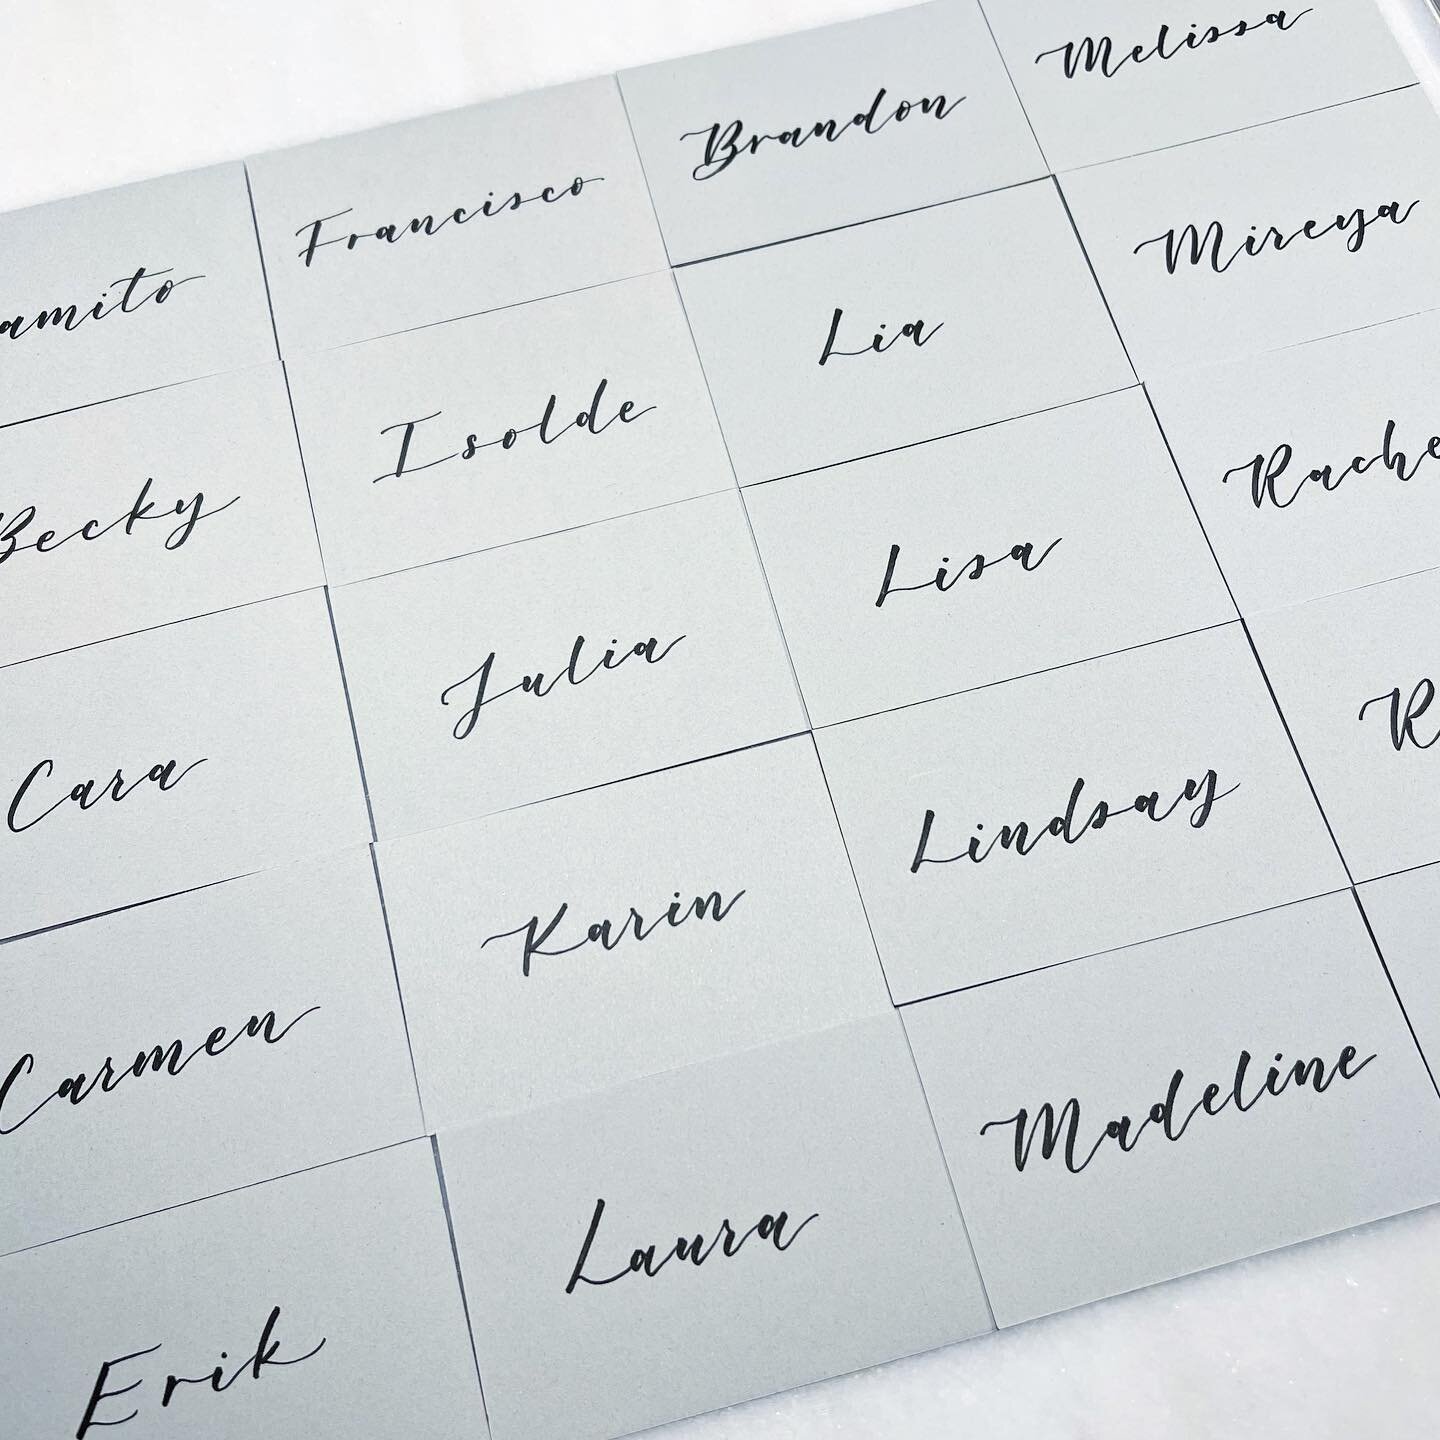 amito
Francisco
Brandon
Melissa
Becky
Isolde
Lia
Mireya
Cara
Julia
Lisa
Rache
Carmen
Karin
Lindsay
R
Erik
Laura
Madeline